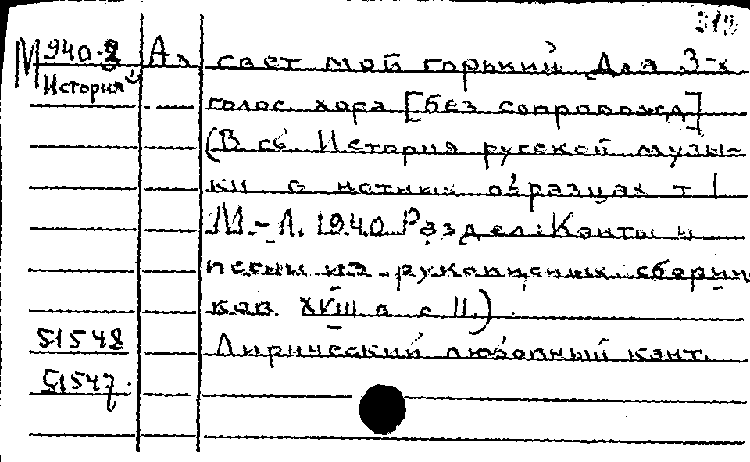 М 940-2 Ах свет мой горький Для 3-х
История голос. хора [без сопровожд.]
(В сб. История русской музы-
ки в нотных образцах т 1
М.-Л. 1940 Раздел: Канты и
песни из рукописных сборни
ков XVIII в. с 11.)
51548 Лирический любовный кант.
51547.